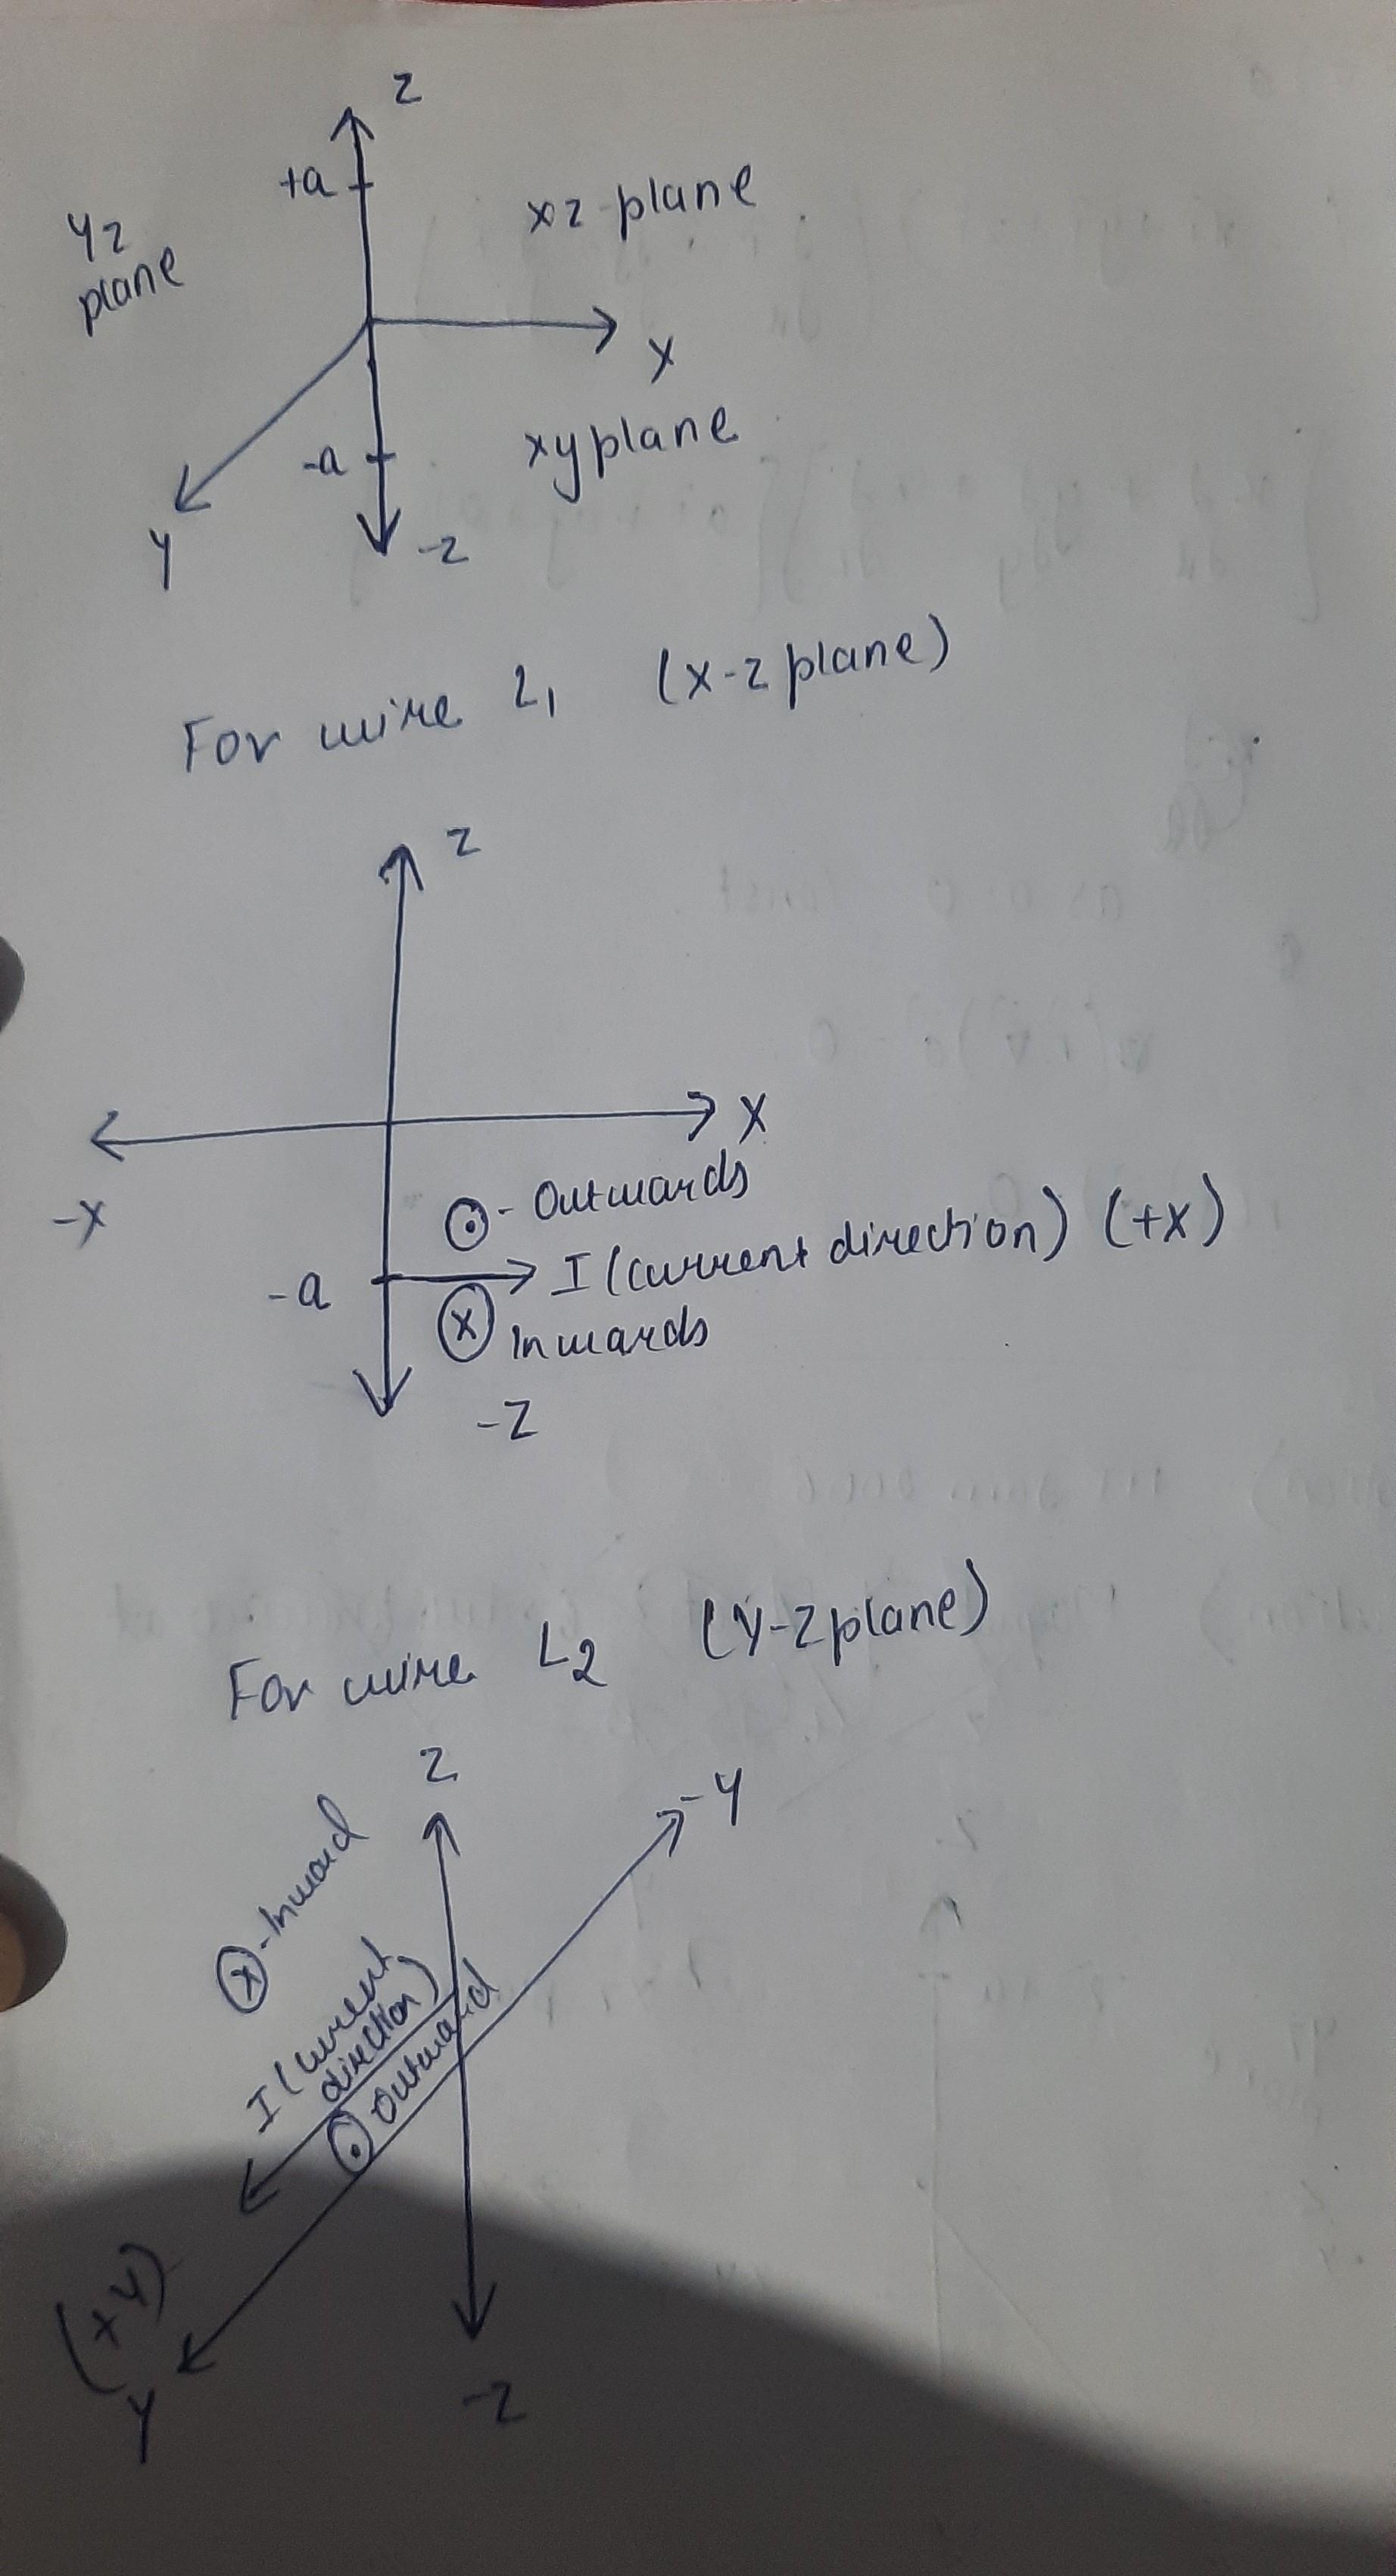 z
+a
xz-plane
yz
plane
x
-a
xy plane
y
-z
For wire L1 (x-z plane)
z
x
-x
⊙ - Outwards
-a
I (current direction) (+x)
ⓧ Inwards
-z
For wire L2 (Y-Z plane)
z
-y
ⓧ - Inward
I (current
direction)
⊙ outward
(+y)
y
-z